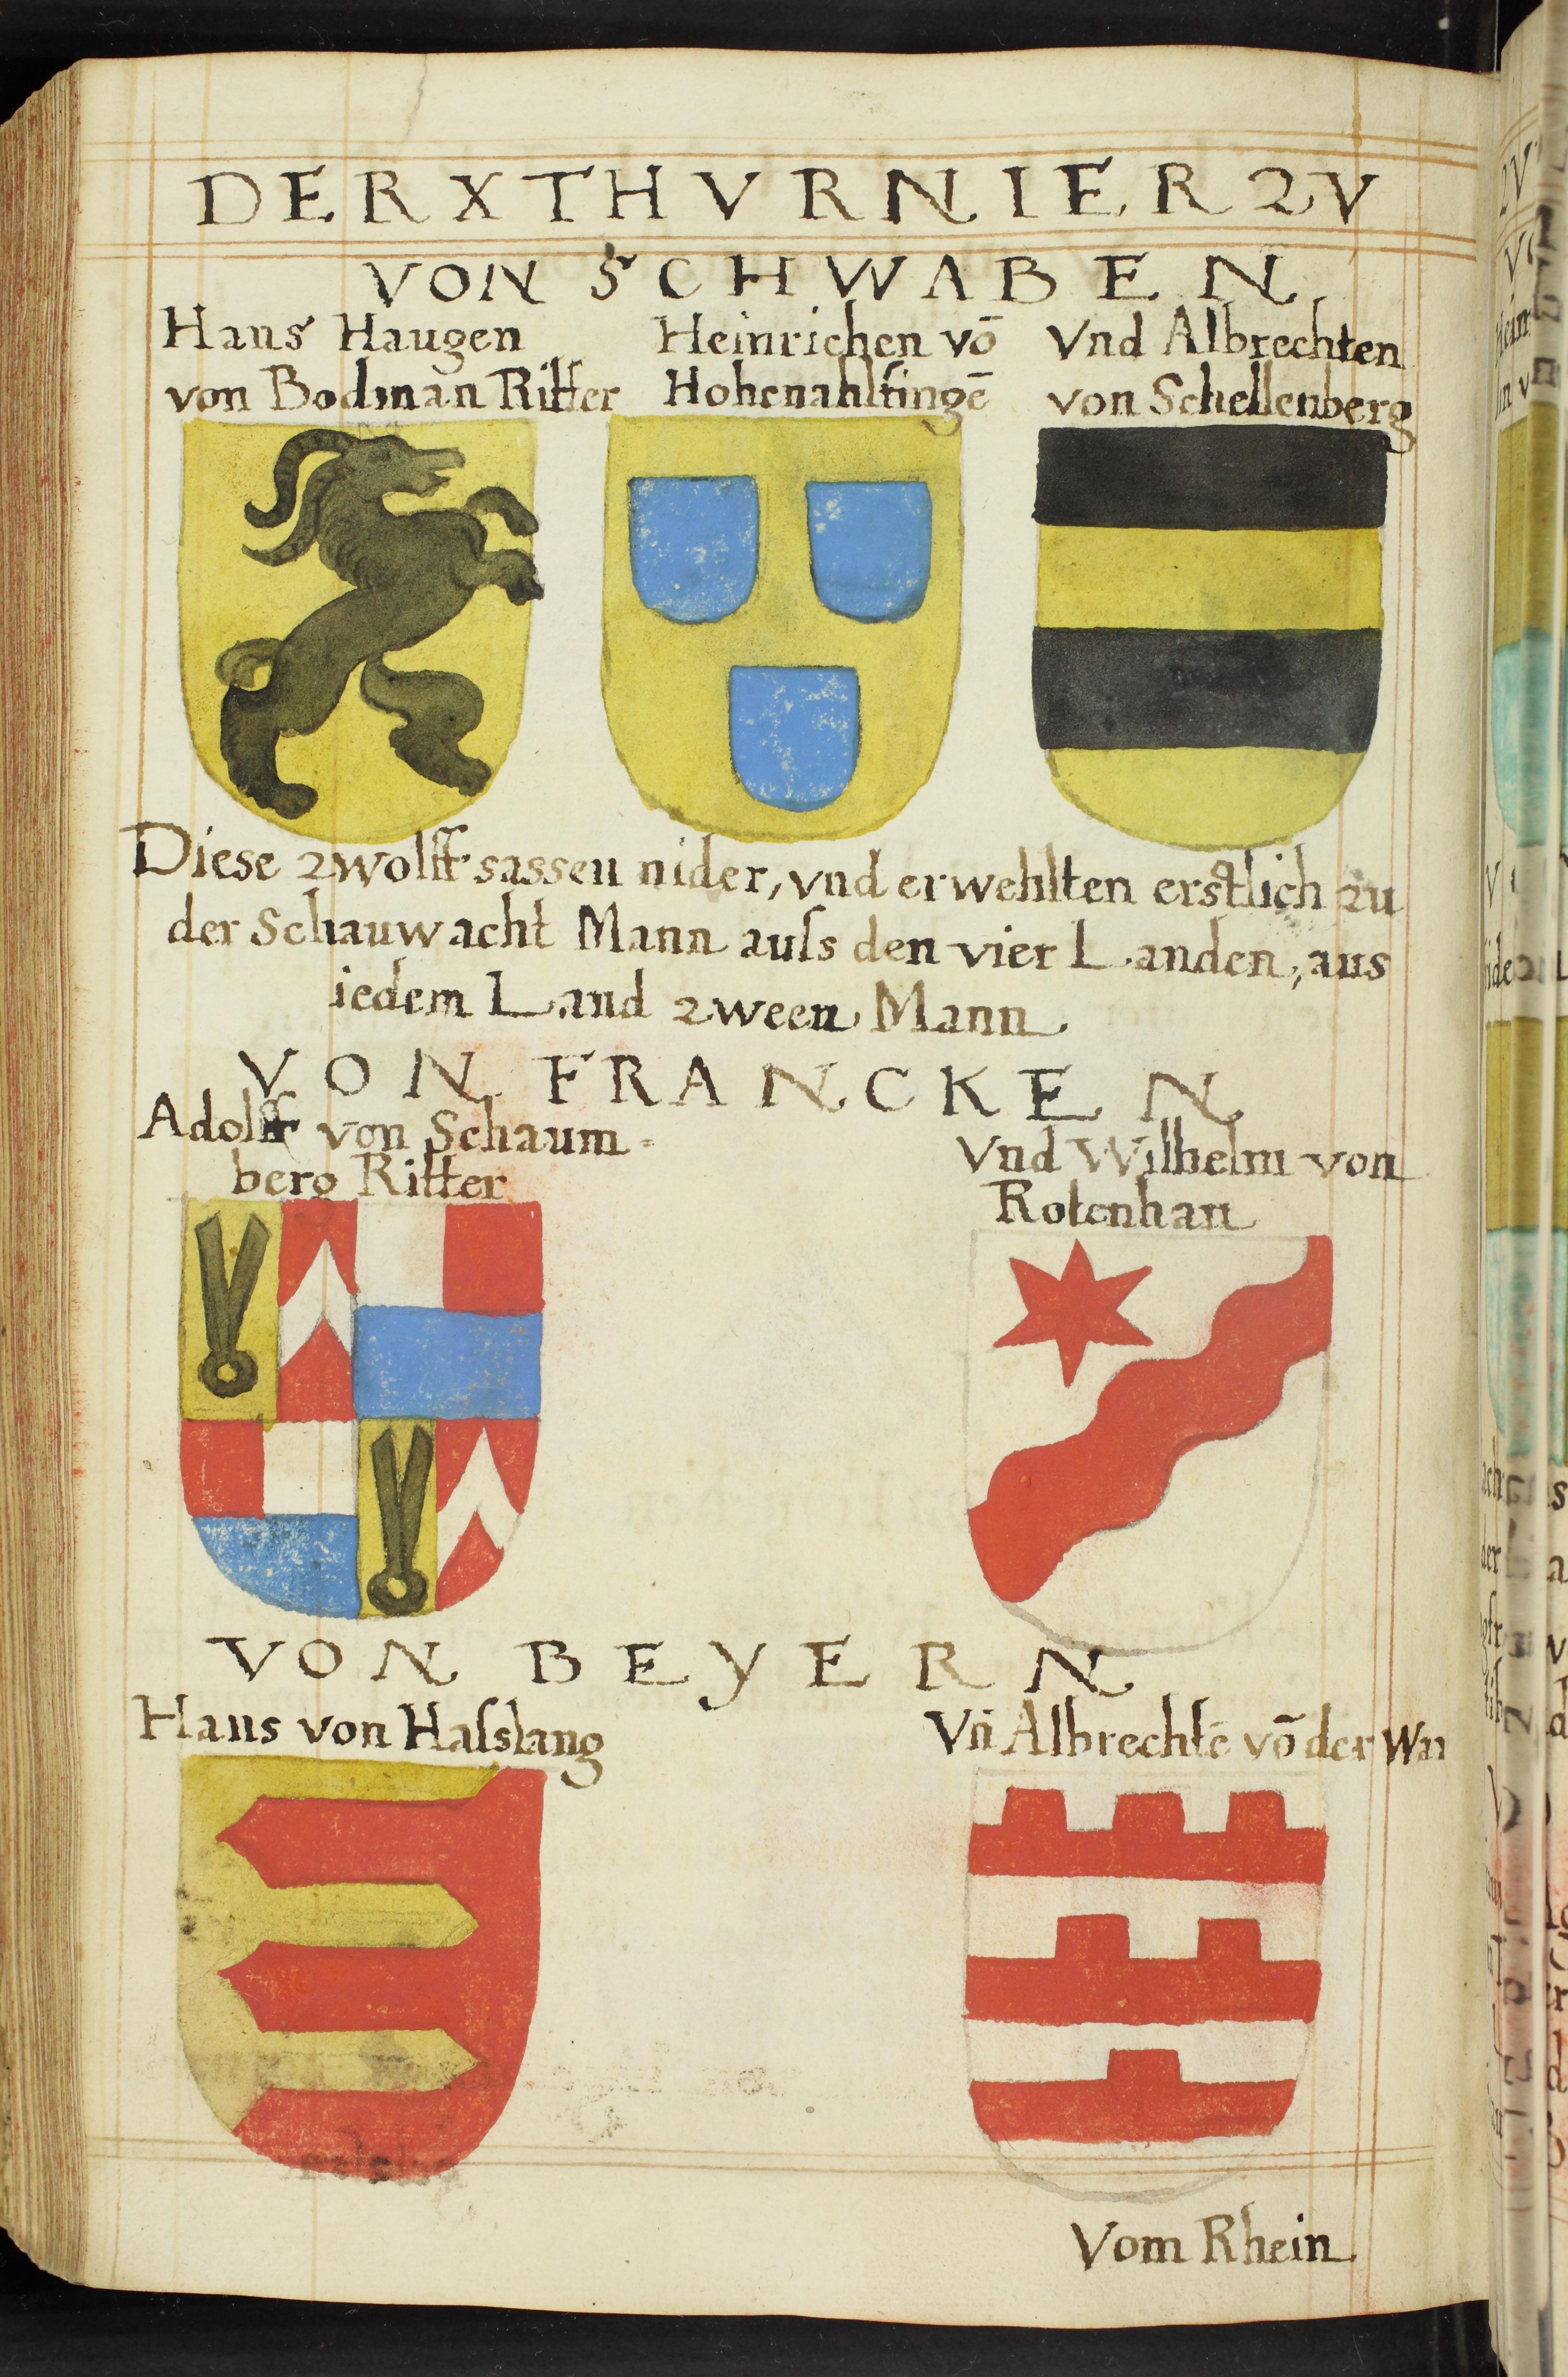 DER X THVRNIER ZV
VON SCHWABEN
Hans Haugen
von Bodman Ritter
Heinrichen vō
Hohenahlfingē
Vnd Albrechten
von Schellenberg
Diese zwolff sassen nider, vnd erwehlten erstlich zu
der Schauwacht Mann auſs den vier Landen, aus
iedem Land zween Mann
VON FRANCKEN
Adolff von Schaum=
berg Ritter
Vnd Wilhelm von
Rotenhan
VON BEYERN
Hans von Haſslang
Vn̄ Albrechtē vō der
Vom Rhein